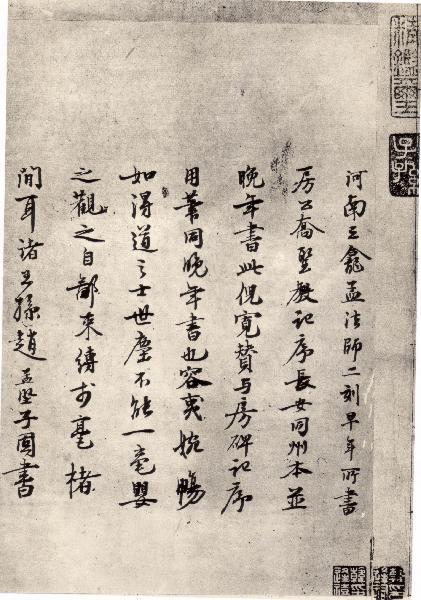 河南三龕孟法師二刻早年所書
房公喬聖教記序長安同州本並
晚年書此倪寬贊與房碑記序
用筆同晚年書也容夷婉暢
如得道之士世塵不能一毫嬰
之觀之自鄙束縛於毫楮
間耳諸王孫趙孟堅子固書